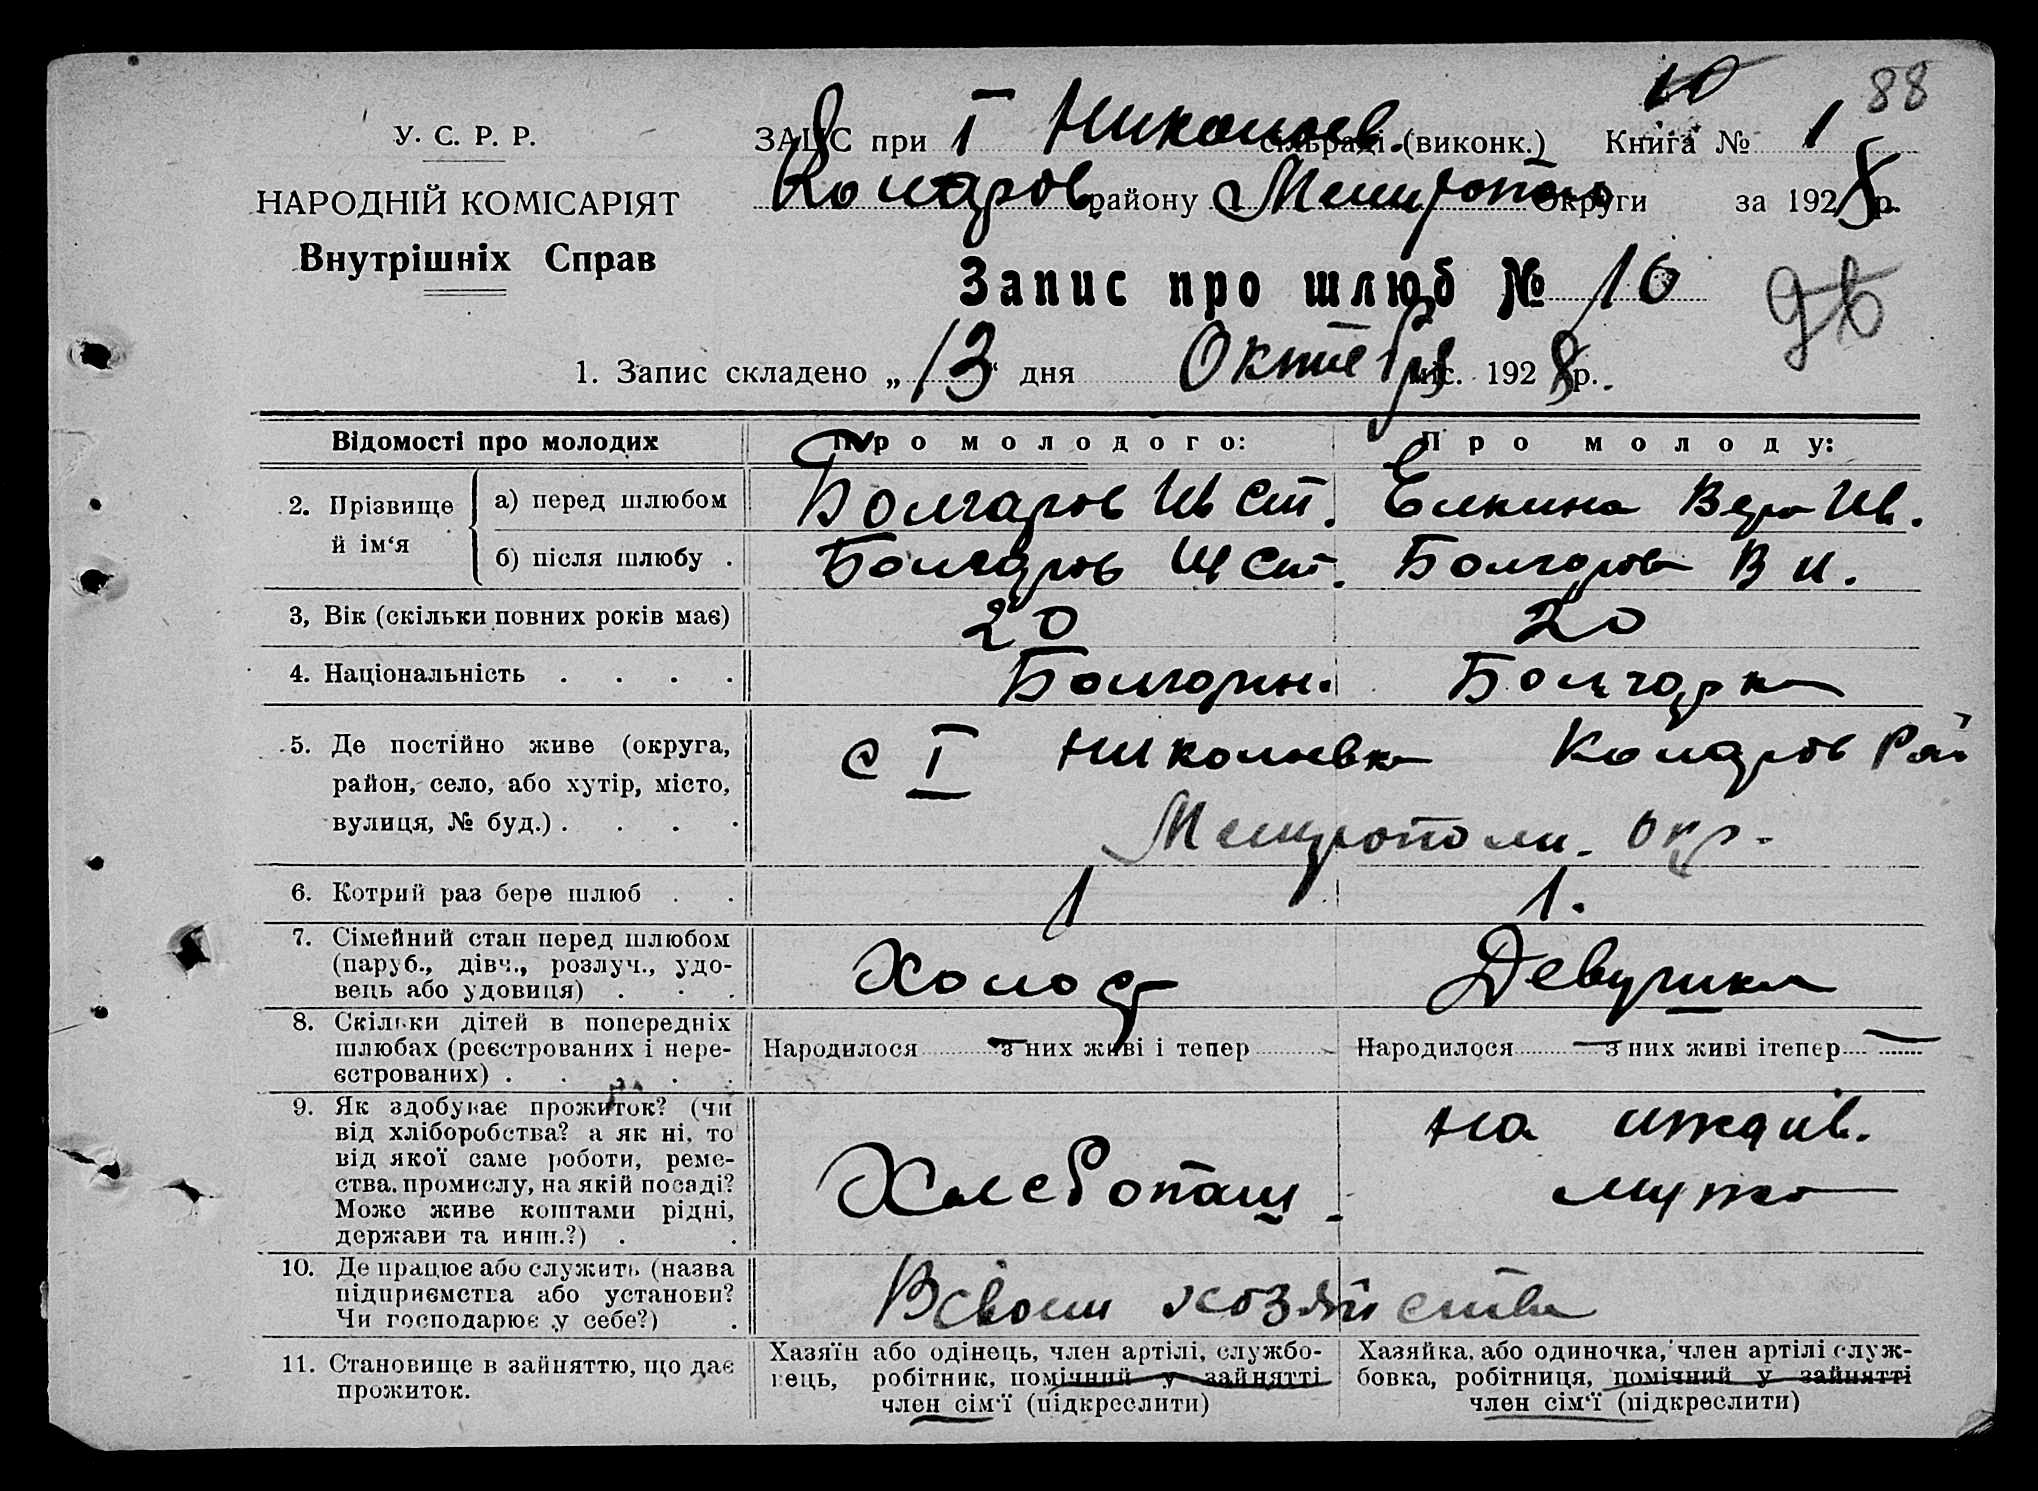 10 88
У. С. Р. Р. ЗАГС при I Николаев. сільраді (виконк.) Книга № 1
НАРОДНІЙ КОМІСАРІЯТ Коларов. району Мелитопол округи за 1928 р.
Внутрішніх Справ
Запис про шлюб № 10
96
1. Запис складено „ 13 “ дня Октября міс. 1928 р.
Відомості про молодих Про молодого: Про молоду:
2. Прізвище й ім‘я
а) перед шлюбом Болгаров Ив Ст. Елкина Вера Ив.
б) після шлюбу . Болгаров Ив Ст. Болгарова В И.
3, Вік (скільки повних років має) 20 20
4. Національність . . . . Болгорин. Болгарка
5. Де постійно живе (округа, с I Николаевка Коларов Рай
район, село, або хутір, місто,
вулиця, № буд.) . . . . Мелитополи. окр.
6. Котрий раз бере шлюб . . 1 1.
7. Сімейний стан перед шлюбом
(паруб., дівч., розлуч., удо- Холост Девушка
вець або удовиця) . . .
8. Скільки дітей в попередніх
шлюбах (реєстрованих і нере- Народилося — з них живі і тепер Народилося — з них живі ітепер —
єстрованих) . . . . .
9. Як здобуває прожиток? (чи на иждив.
від хліборобства? а як ні, то
від якої саме роботи, реме-
ства, промислу, на якій посаді? Хлебопаш. мужа
Може живе коштами рідні,
держави та инш.?) . .
10. Де працює або служить (назва
підприємства або установи? В своем хозяйстве
Чи господарює у себе?) .
11. Становище в зайняттю, що дає
прожиток.
Хазяїн або одінець, член артілі, службо-
вець, робітник, помічний у зайнятті
член сім‘ї (підкреслити)
Хазяйка, або одиночка, член артілі служ-
бовка, робітниця, помічний у зайнятті
член сім‘ї (підкреслити)